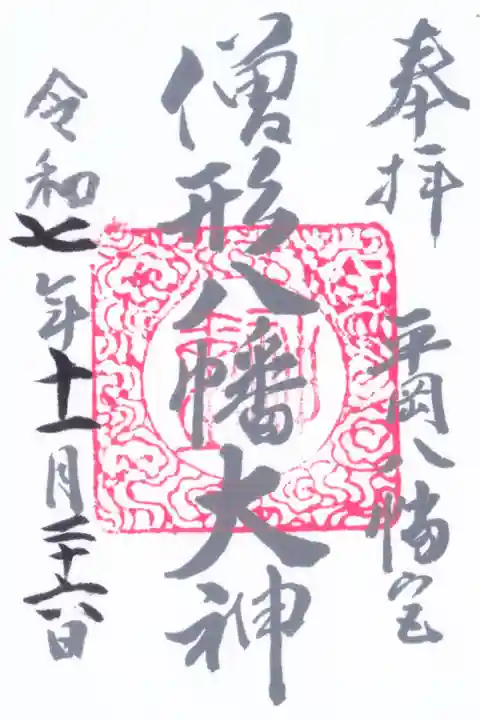 奉拝
平岡八幡宮
僧形八幡大神
令和七年十一月二十六日